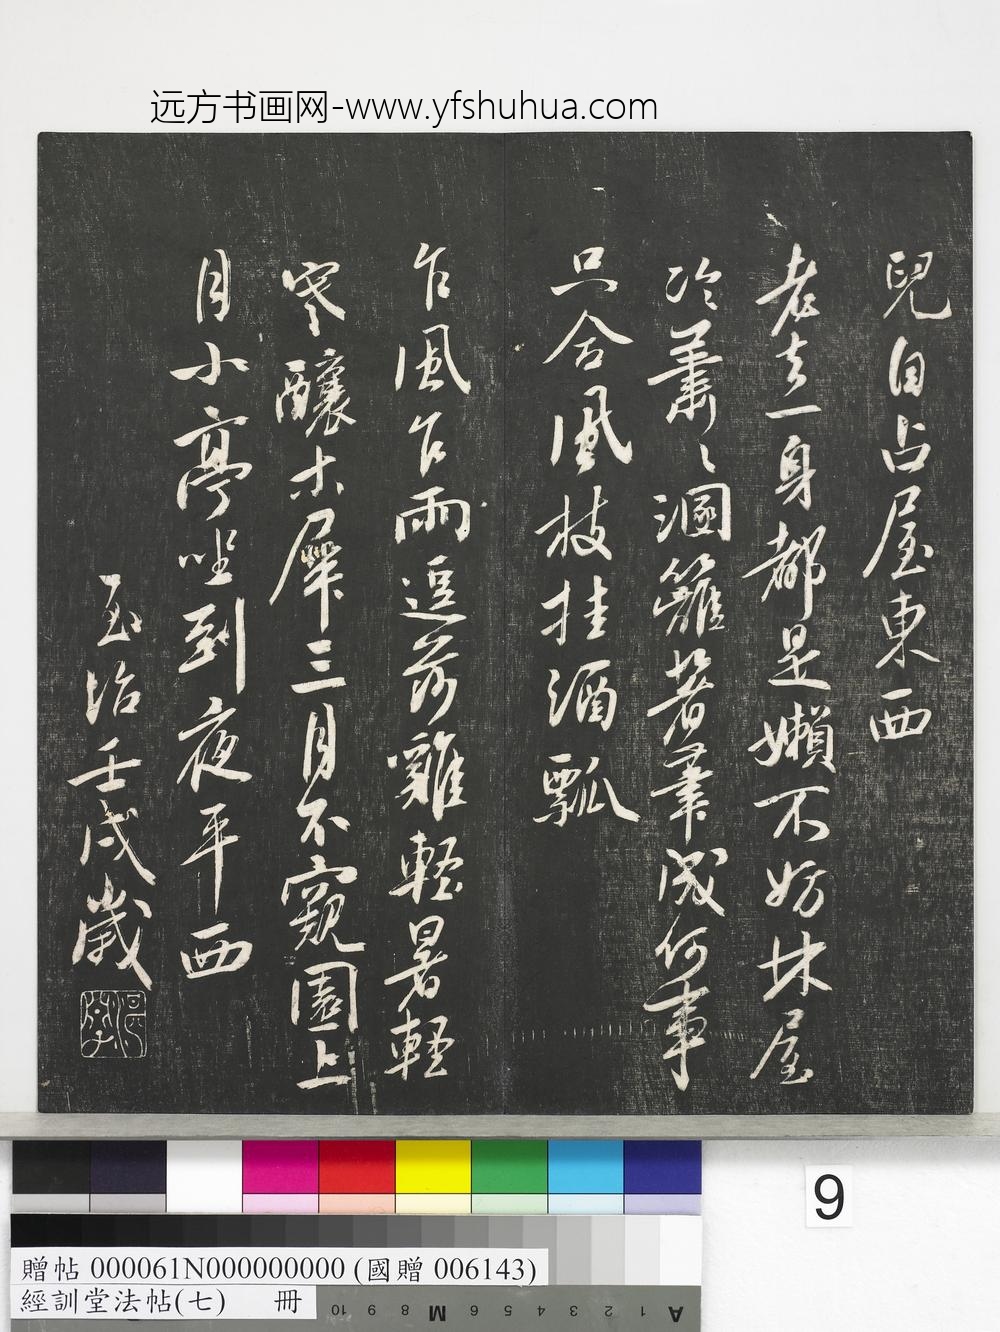 远方书画网-www.yfshuhua.com
兒自占屋東西
老去一身都是嬾不妨林屋
冷蕭〻溷籬著書成何事
只合風枝挂酒瓢
乍風乍雨逗前難輕暑輕
寒釀木犀三月不窺園上
月小亭坐到夜平西
至治壬戌歲
9
贈帖 000061N000000000 (國贈 006143)
經訓堂法帖(七) 冊
10 9 8 M 6 5 4 3 2 1 A